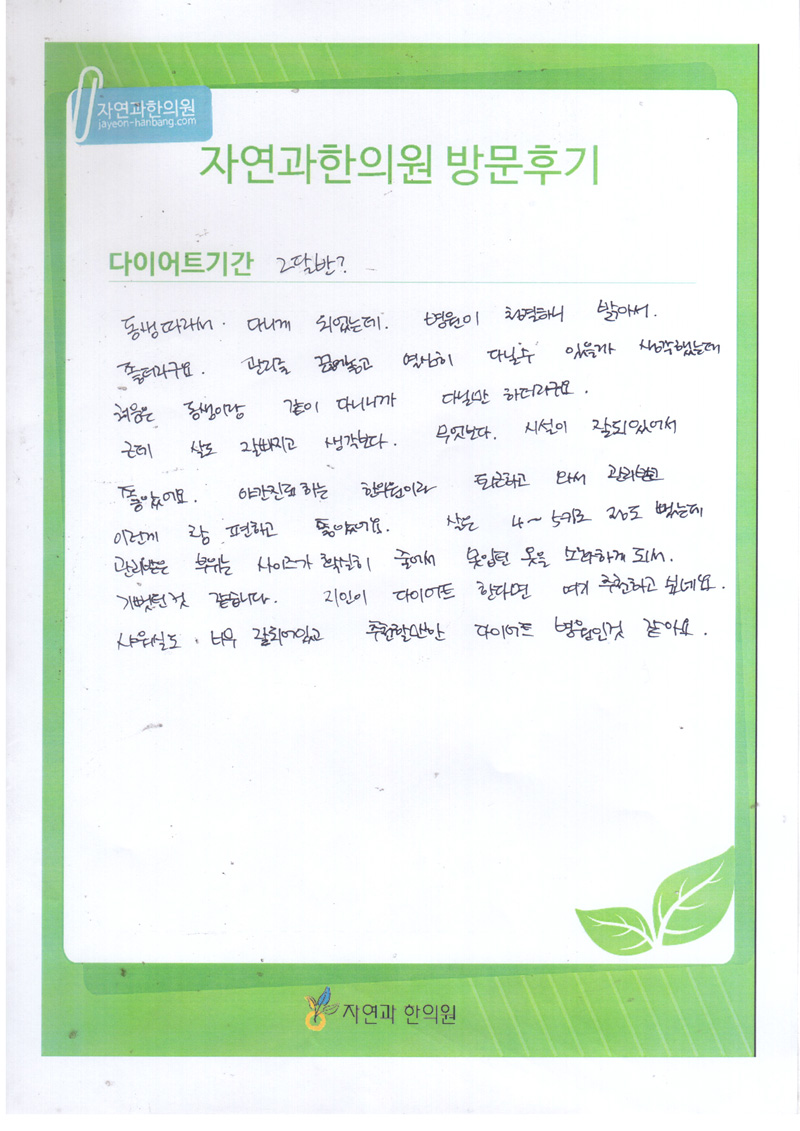 자연과한의원
jayeon-hanbang.com
자연과한의원 방문후기
다이어트기간 2달반?
동생따라서. 다니게 되었는데. 병원이 청결하니 밝아서.
좋더라구요. 관리를 끊어놓고 열심히 다닐수 있을까 생각했는데
처음은 동생이랑 같이 다니니까 다닐만 하더라구요.
근데 살도 잘빠지고 생각보다. 무엇보다. 시설이 잘되있어서
좋았어요. 야간진료하는 한의원이라 퇴근하고 와서 관리받고
이런게 참 편하고 좋았어요. 살은 4~5키로 정도 뺐는데
관리받은 부위는 사이즈가 확실히 줄어서 못입던 옷을 하게 되서.
기뻤던것 같습니다. 지인이 다이어트 한다면 여기 추천하고 싶네요.
샤워실도. 너무 잘되어있고 추천할만한 다이어트 병원인것 같아요.
자연과 한의원